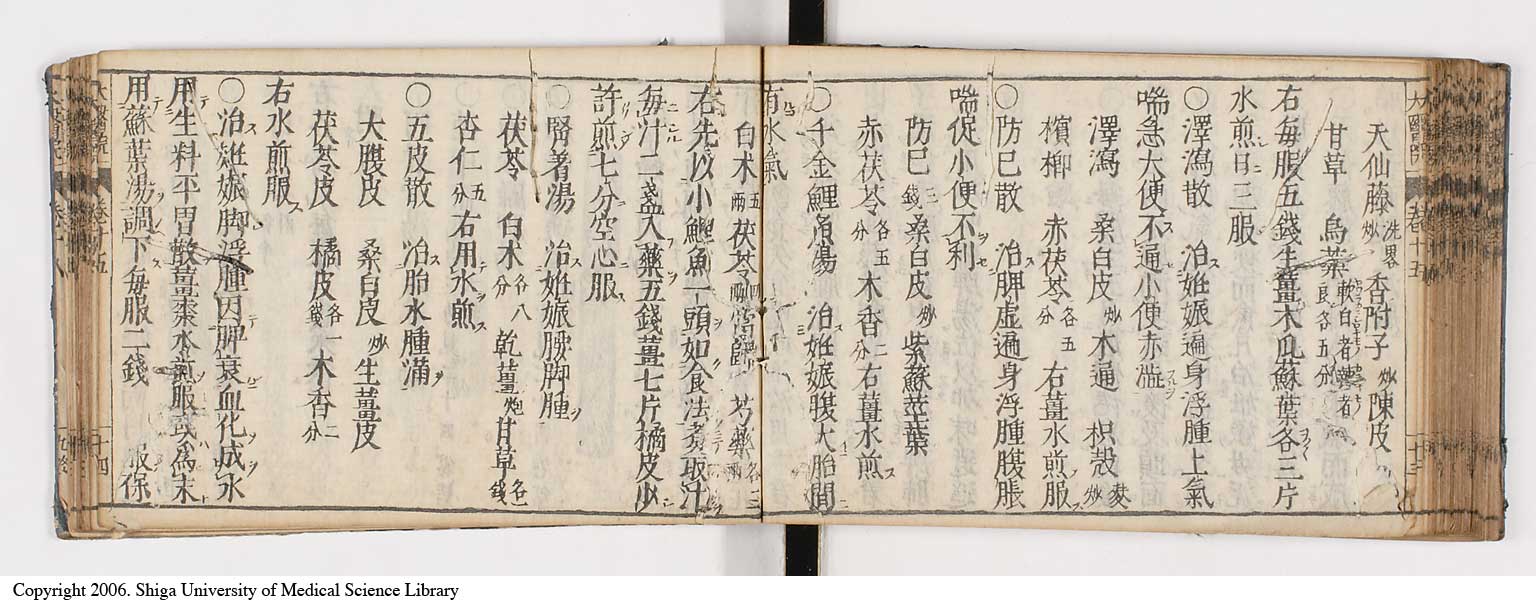 天仙藤洗畧炒 香附子炒 陳皮
甘草 烏藥軟白者辣者良各五分
右每服五錢生薑木瓜蘇葉各三片
水煎日三服
○澤瀉散 治姙娠遍身浮腫上氣
喘急大便不通小便赤澁
澤瀉 桑白皮炒 木通 枳殼麸炒
檳榔 赤茯苓各五分 右薑水煎服
○防巳散 治脾虛遍身浮腫腹脹
喘促小便不利
防巳三錢 桑白皮炒 紫蘇莖葉
赤茯苓各五分 木香二分 右薑水煎
○千金鯉魚湯 治姙娠腹大胎間
有水氣
白术五兩 茯苓四兩 當歸 芍藥各三兩
右先以小鯉魚一頭如食法煮取汁
每汁二盞入藥五錢薑七片橘皮少
許煎七分空心服
○腎著湯 治姙娠腰脚腫
茯苓 白术各八分 乾薑炮 甘草各一錢
杏仁五分 右用水煎
○五皮散 治胎水腫滿
大腹皮 桑白皮炒 生薑皮
茯苓皮 橘皮各一錢 木香二分
右水煎服
○治姙娠脚浮腫因脾衰血化成水
用生料平胃散薑棗水煎服或爲末
用蘇葉湯調下每服二錢 服保
Copyright 2006. Shiga University of Medical Science Library